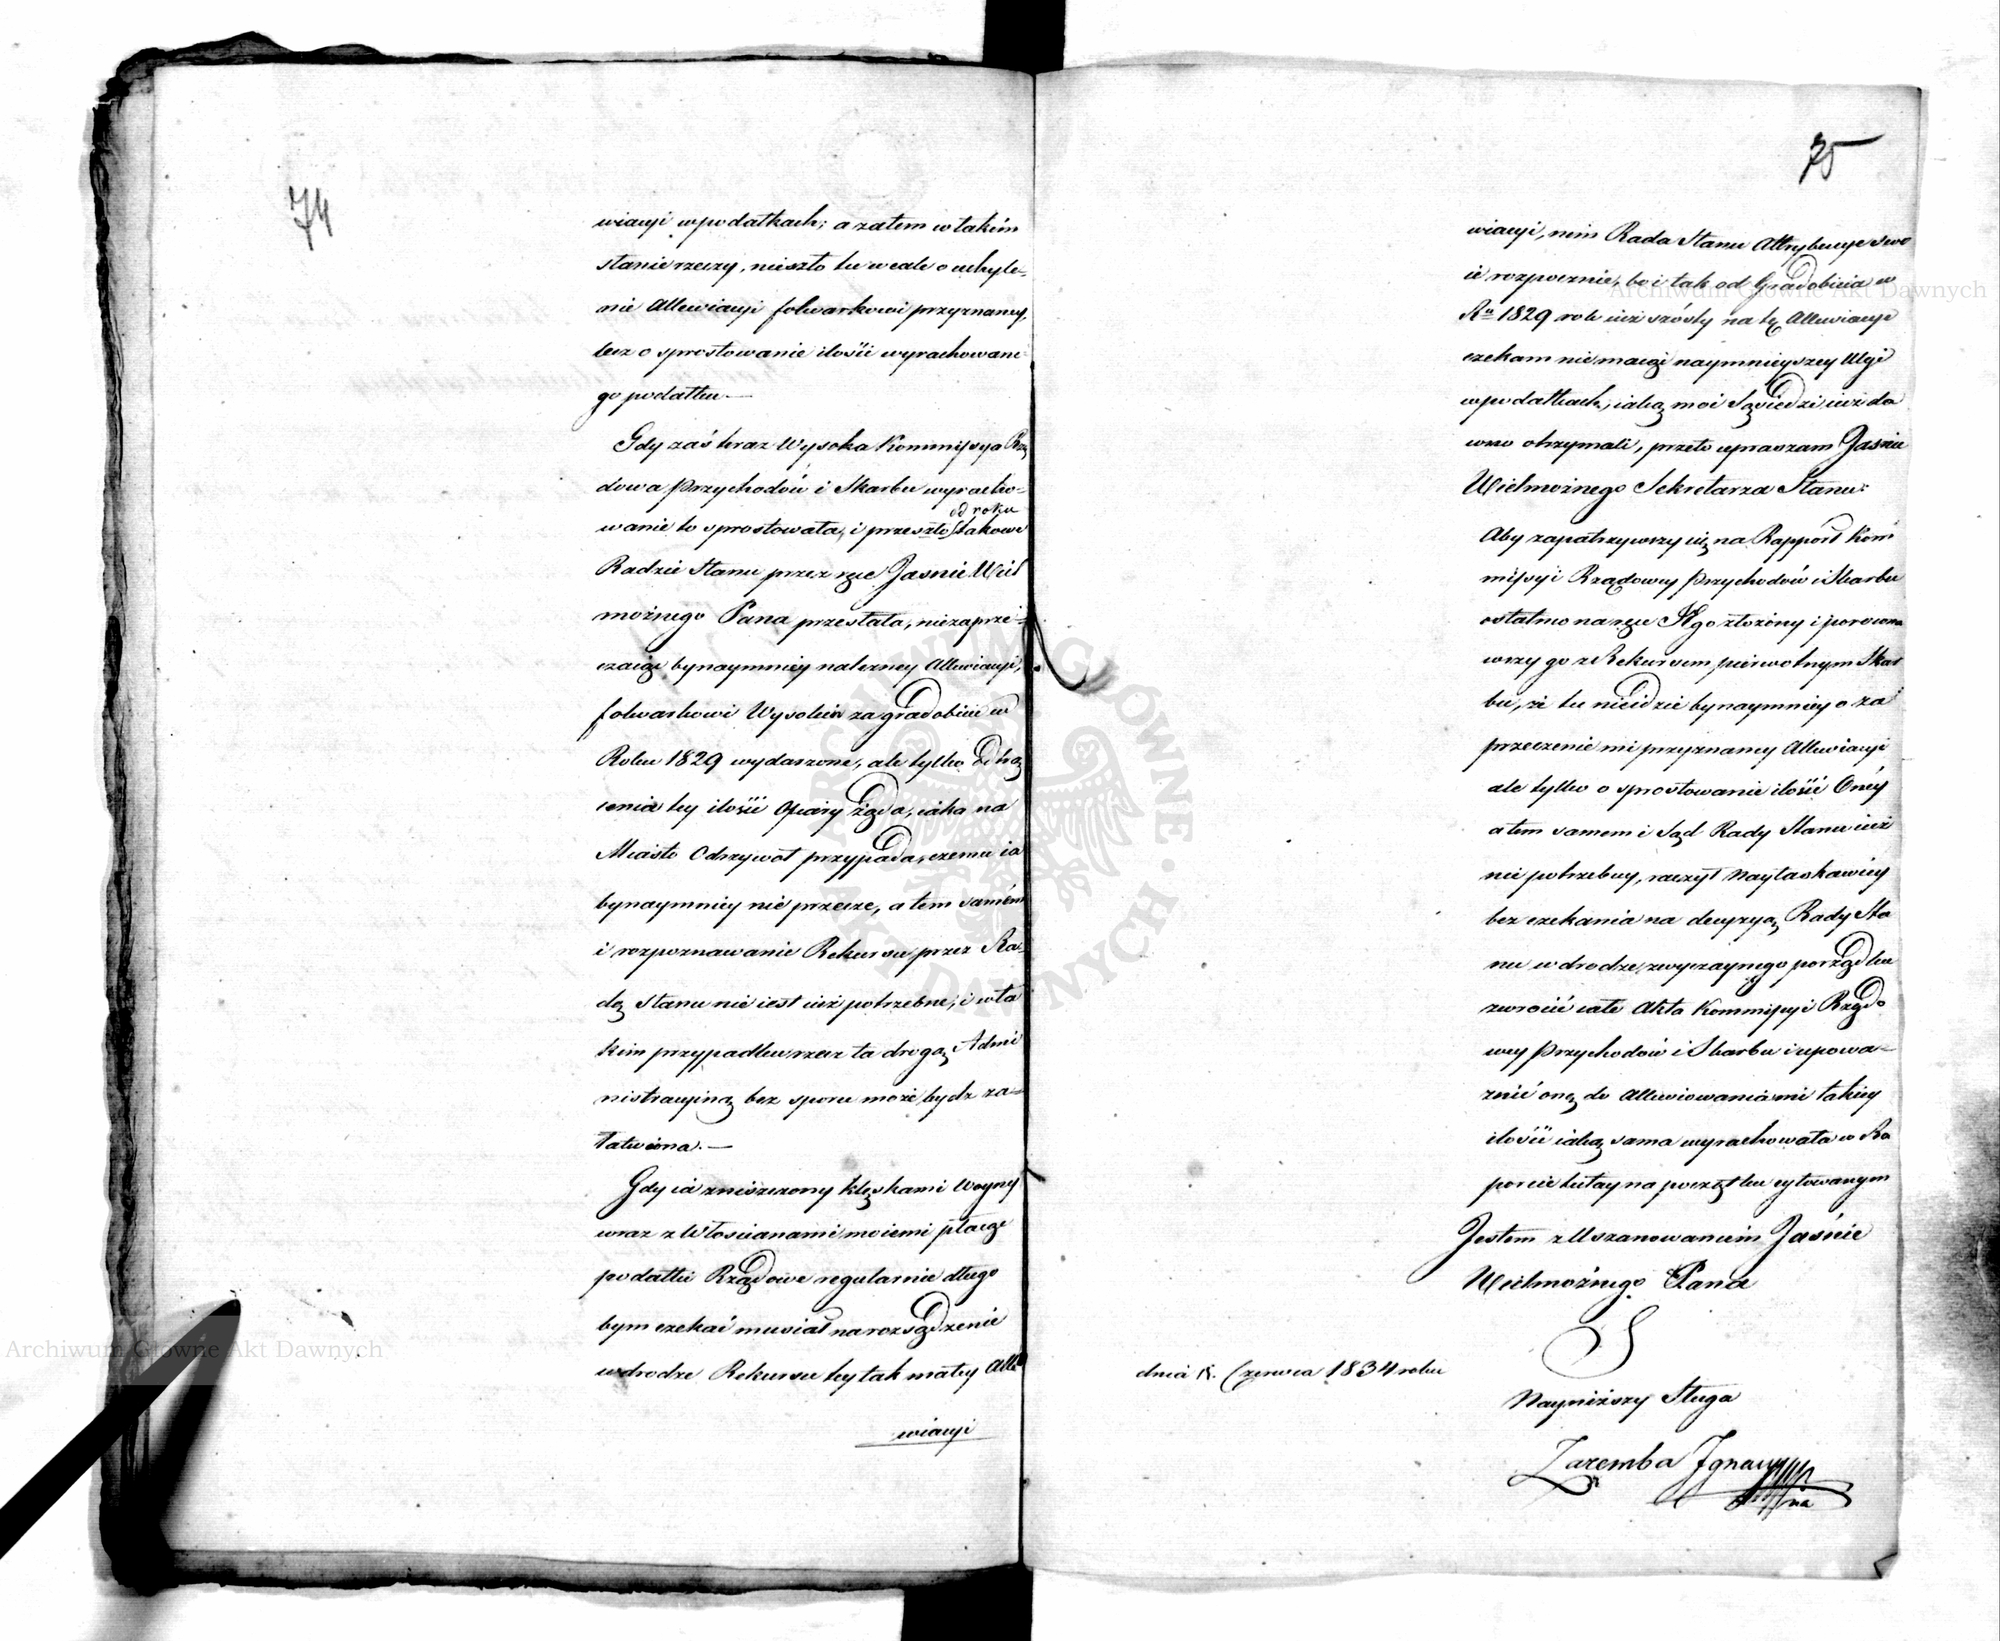 74
wiacyi w podatkach; a zatem w takim
stanie rzeczy, nieszło tu wcale o uchyle-
nie Allewiacyi folwarkowi przyznaney,
lecz o sprostowanie ilości wyrachowane-
go podatku —
Gdy zaś teraz Wysoka Kommissya Rzą
dowa Przychodów i Skarbu wyracho-
wanie to sprostowała, i przeszło od roku takowe
Radzie Stanu przez ręce Jasnie Wiel
możnego Pana przesłała, niezaprze-
czaiąc bynaymniey należney Allewiacyi,
folwarkowi Wysokin za gradobicie w
Roku 1829 wydarzone, ale tylko Odtrą
cenia tey ilości Ofiary żąda, iaka na
Miasto Odrzywoł przypada, czemu ia
bynaymniey nie przecze, a tem samem
i rozpoznawanie Rekursu przez Ra-
dę Stanu nie iest iuż potrzebne, i w ta
kim przypadku rzecz ta drogą Admi
nistracyiną bez sporu może bydz za-
łatwiona. —
Gdy ia zniszczony klęskami Woyny
wraz z Włościanami moiemi płacąc
podatki Rządowe regularnie długo
bym czekać musiał na rozsądzenie
w drodze Rekursu tey tak małey Alle
wiacyi
75
wiacyi, nim Rada Stanu Attrybucye swo
ie rozpocznie, bo i tak od Gradobicia w
Ru 1829 rok iuż szósty na tę Allewiacye
czekam nie maiąc naymnieyszey Ulgi
w podatkach, iaką moi Sąsiedzi iuż da
wno otrzymali, przeto upraszam Jasnie
Wielmożnego Sekretarza Stanu:
Aby zapatrzywszy się na Rapport Kom
missyi Rządowey Przychodów i Skarbu
ostatnio na ręce JWgo złożony i porowna
wszy go z Rekursem pierwotnym Skar
bu, że tu nieidzie bynaymniey o za
przeczenie mi przyznaney Allewiacyi
ale tylko o sprostowanie ilości Oney
a tem samem i Sąd Rady Stanu iuż
nie potrzebny, raczył Nayłaskawiey
bez czekania na decyzyą Rady Sta
nu w drodze zwyczaynego porządku
zwrocić całe Akta Kommissyi Rządo
wey Przychodów i Skarbu i upowa-
żnić onę do Allewiowania mi takiey
ilości iaką sama wyrachowała w Ra
porcie tutay na początku cytowanym
Jestem z Uszanowaniem Jaśnie
Wielmożnego Pana
dnia Czerwca 1834 roku
Nayniższy Sługa
Zaremba Ignacy
Archiwum Główne Akt Dawnych
Archiwum Główne Akt Dawnych
ARCHIWUM GŁÓWNE AKT DAWNYCH